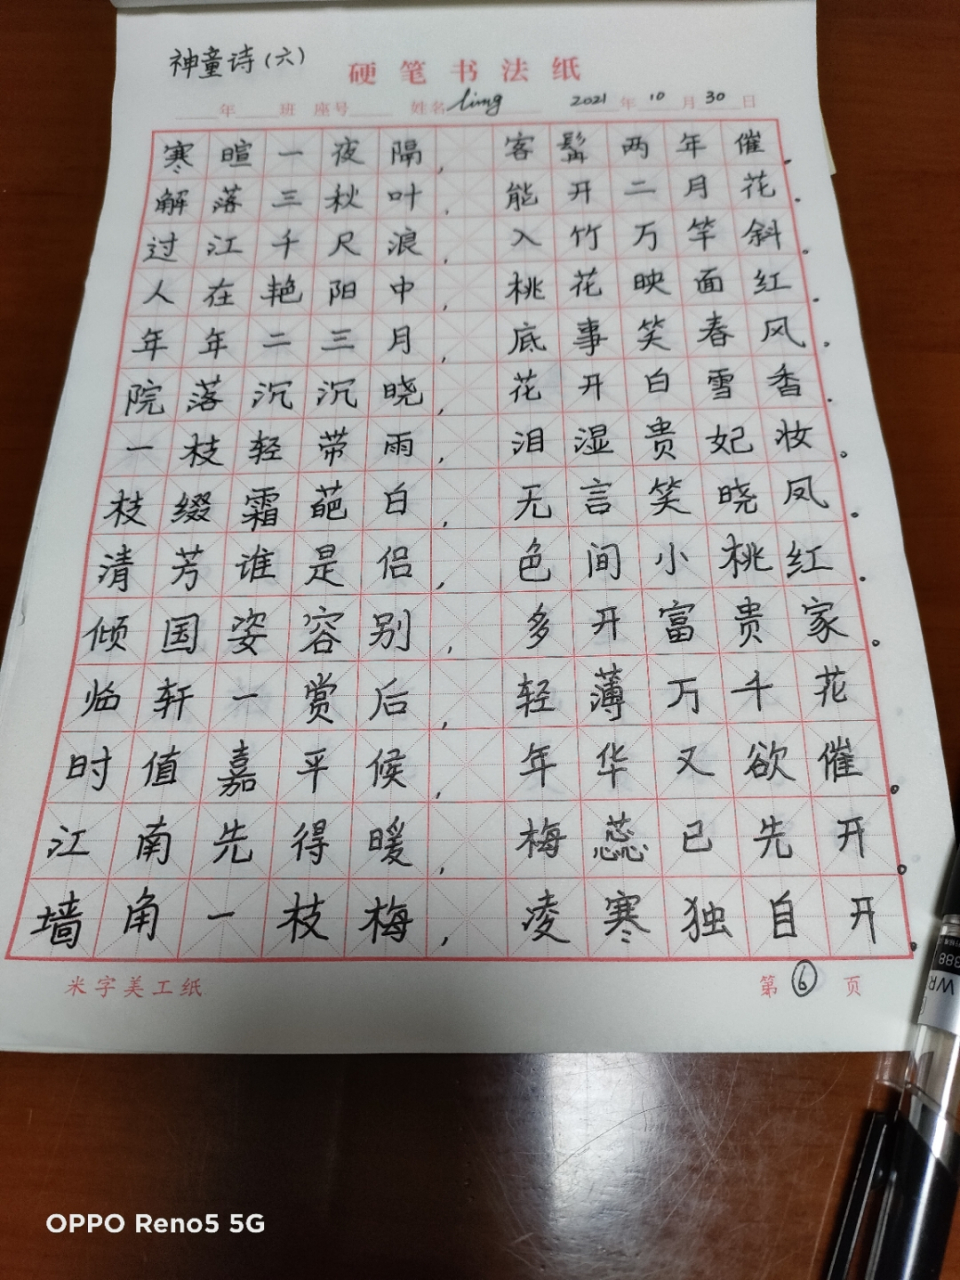 神童诗(六)
硬笔书法纸
年 班 座号 姓名 limg 2021 年 10 月 30 日
寒暄一夜隔，客鬓两年催。
解落三秋叶，能开二月花。
过江千尺浪，入竹万竿斜。
人在艳阳中，桃花映面红。
年年二三月，底事笑春风。
院落沉沉晓，花开白雪香。
一枝轻带雨，泪湿贵妃妆。
枝缀霜葩白，无言笑晓凤。
清芳谁是侣，色间小桃红。
倾国姿容别，多开富贵家。
临轩一赏后，轻薄万千花
时值嘉平候，年华又欲催。
江南先得暖，梅蕊已先开。
墙角一枝梅，凌寒独自开。
米字美工纸 第 6 页
388
WR
OPPO Reno5 5G